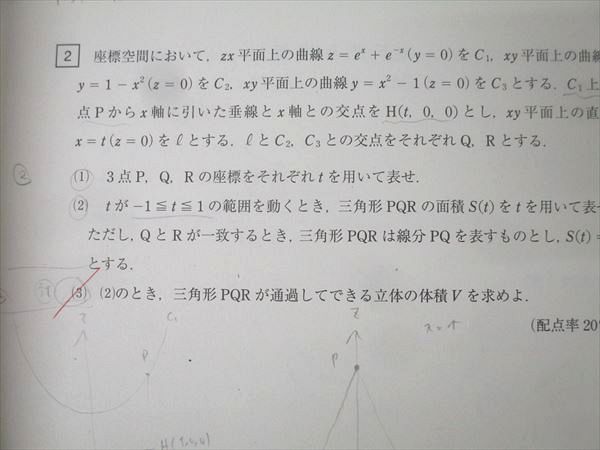 2 座標空間において，zx平面上の曲線 z = eˣ + e⁻ˣ (y = 0) を C₁，xy平面上の曲線
y = 1 − x² (z = 0) を C₂，xy平面上の曲線 y = x² − 1 (z = 0) を C₃ とする．C₁ 上
点Pから x 軸に引いた垂線と x 軸との交点を H(t, 0, 0) とし，xy平面上の直
x = t (z = 0) を ℓ とする．ℓ と C₂，C₃ との交点をそれぞれ Q，R とする．
(1) 3点P，Q，Rの座標をそれぞれ t を用いて表せ．
(2) t が −1 ≦ t ≦ 1 の範囲を動くとき，三角形PQRの面積 S(t) を t を用いて表
ただし，QとRが一致するとき，三角形PQRは線分PQを表すものとし，S(t) =
とする．
(3) (2)のとき，三角形PQRが通過してできる立体の体積 V を求めよ．
(配点率 20
z C₁ z x = t
P P